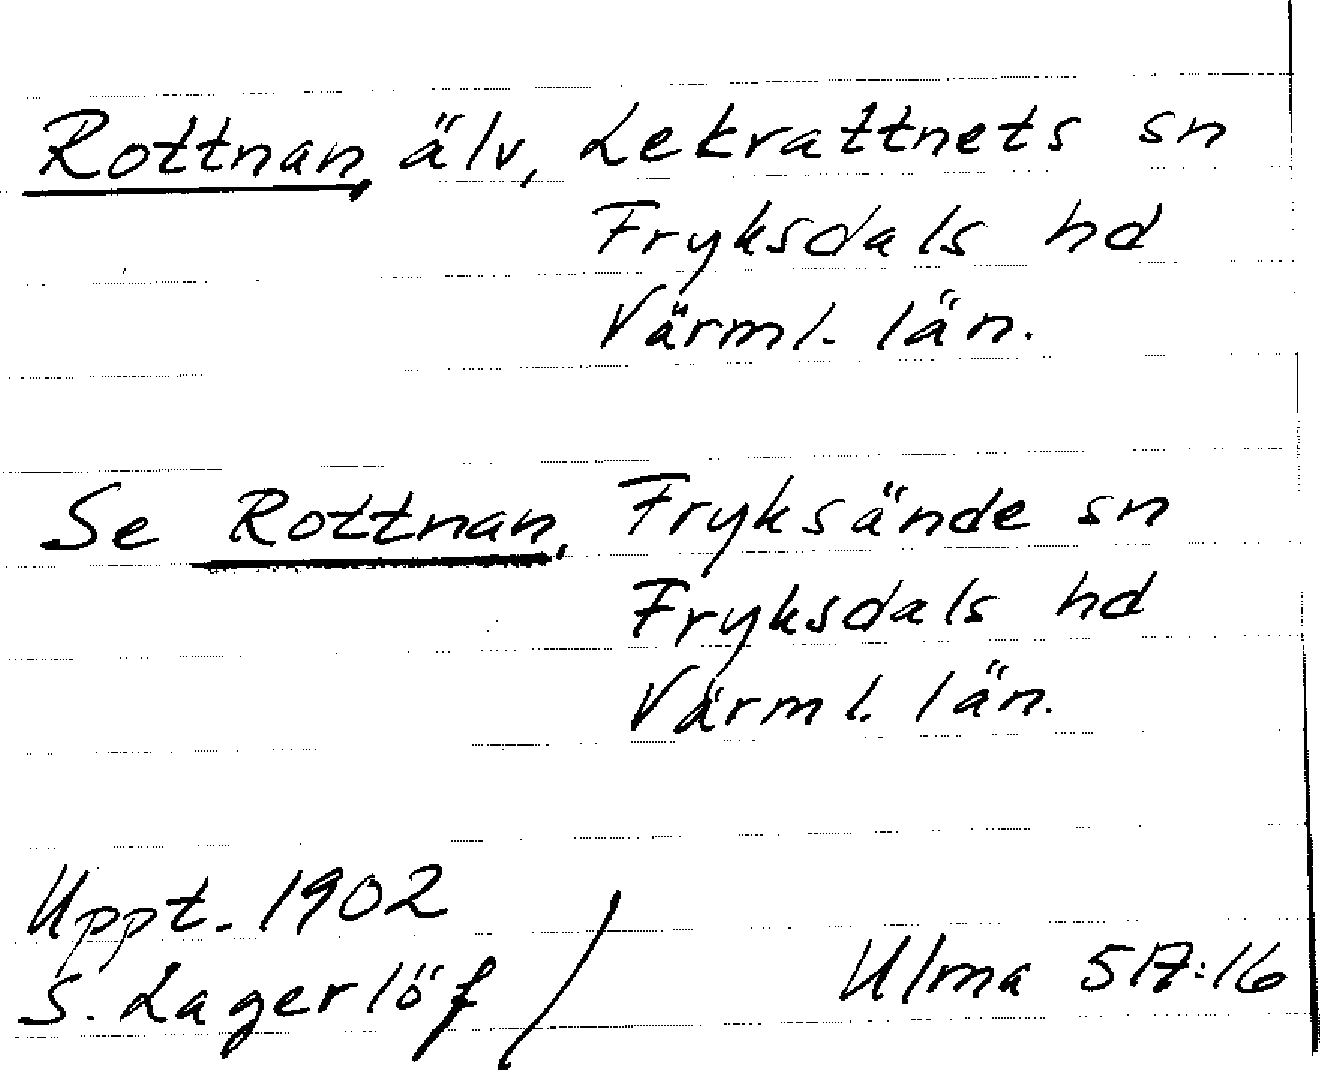 Rottnan, älv, Lekvattnets sn
Fryksdals hd
Värml. län.
Se Rottnan, Fryksände sn
Fryksdals hd
Värml. län.
Uppt. 1902
S. Lagerlöf / Ulma 517:16